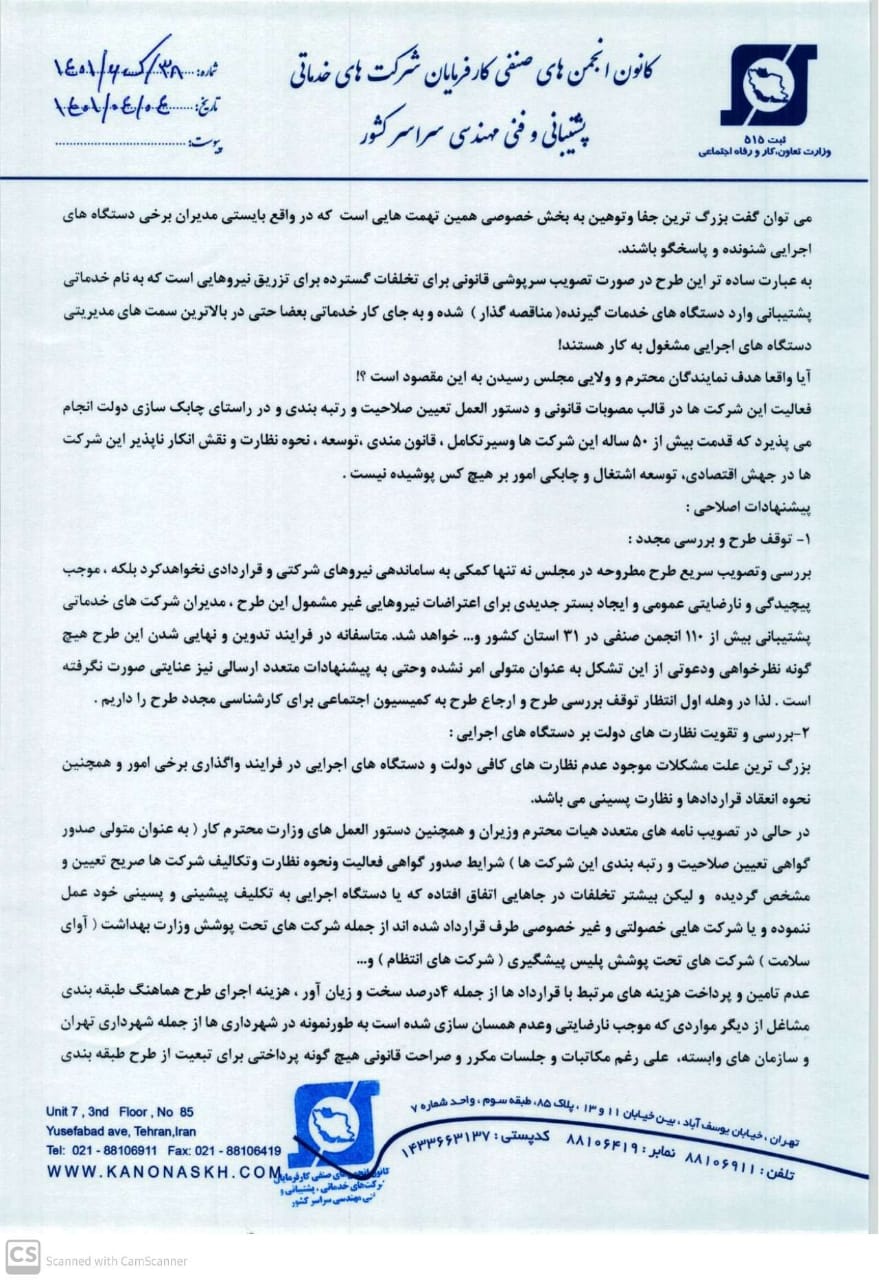 کانون انجمن های صنفی کارفرمایان شرکت های خدماتی
پشتیبانی و فنی مهندسی سراسر کشور
ثبت ۵۱۵
وزارت تعاون،کار و رفاه اجتماعی
شماره: ۳۸/ک/۱۴۰۱
تاریخ: ۱۴۰۱/۰۴/۰۴
پیوست:
می توان گفت بزرگ ترین جفا وتوهین به بخش خصوصی همین تهمت هایی است که در واقع بایستی مدیران برخی دستگاه های
اجرایی شنونده و پاسخگو باشند.
به عبارت ساده تر این طرح در صورت تصویب سرپوشی قانونی برای تخلفات گسترده برای تزریق نیروهایی است که به نام خدماتی
پشتیبانی وارد دستگاه های خدمات گیرنده( مناقصه گذار ) شده و به جای کار خدماتی بعضا حتی در بالاترین سمت های مدیریتی
دستگاه های اجرایی مشغول به کار هستند!
آیا واقعا هدف نمایندگان محترم و ولایی مجلس رسیدن به این مقصود است ؟!
فعالیت این شرکت ها در قالب مصوبات قانونی و دستور العمل تعیین صلاحیت و رتبه بندی و در راستای چابک سازی دولت انجام
می پذیرد که قدمت بیش از ۵۰ ساله این شرکت ها وسیرتکامل ، قانون مندی ،توسعه ، نحوه نظارت و نقش انکار ناپذیر این شرکت
ها در جهش اقتصادی، توسعه اشتغال و چابکی امور بر هیچ کس پوشیده نیست .
پیشنهادات اصلاحی :
۱- توقف طرح و بررسی مجدد :
بررسی وتصویب سریع طرح مطروحه در مجلس نه تنها کمکی به ساماندهی نیروهای شرکتی و قراردادی نخواهدکرد بلکه ، موجب
پیچیدگی و نارضایتی عمومی و ایجاد بستر جدیدی برای اعتراضات نیروهایی غیر مشمول این طرح ، مدیران شرکت های خدماتی
پشتیبانی بیش از ۱۱۰ انجمن صنفی در ۳۱ استان کشور و... خواهد شد. متاسفانه در فرایند تدوین و نهایی شدن این طرح هیچ
گونه نظرخواهی ودعوتی از این تشکل به عنوان متولی امر نشده وحتی به پیشنهادات متعدد ارسالی نیز عنایتی صورت نگرفته
است . لذا در وهله اول انتظار توقف بررسی طرح و ارجاع طرح به کمیسیون اجتماعی برای کارشناسی مجدد طرح را داریم .
۲-بررسی و تقویت نظارت های دولت بر دستگاه های اجرایی :
بزرگ ترین علت مشکلات موجود عدم نظارت های کافی دولت و دستگاه های اجرایی در فرایند واگذاری برخی امور و همچنین
نحوه انعقاد قراردادها و نظارت پسینی می باشد.
در حالی در تصویب نامه های متعدد هیات محترم وزیران و همچنین دستور العمل های وزارت محترم کار ( به عنوان متولی صدور
گواهی تعیین صلاحیت و رتبه بندی این شرکت ها ) شرایط صدور گواهی فعالیت ونحوه نظارت وتکالیف شرکت ها صریح تعیین و
مشخص گردیده و لیکن بیشتر تخلفات در جاهایی اتفاق افتاده که یا دستگاه اجرایی به تکلیف پیشینی و پسینی خود عمل
ننموده و یا شرکت هایی خصولتی و غیر خصوصی طرف قرارداد شده اند از جمله شرکت های تحت پوشش وزارت بهداشت ( آوای
سلامت ) شرکت های تحت پوشش پلیس پیشگیری ( شرکت های انتظام ) و...
عدم تامین و پرداخت هزینه های مرتبط با قرارداد ها از جمله ۴درصد سخت و زیان آور ، هزینه اجرای طرح هماهنگ طبقه بندی
مشاغل از دیگر مواردی که موجب نارضایتی وعدم همسان سازی شده است به طورنمونه در شهرداری ها از جمله شهرداری تهران
و سازمان های وابسته، علی رغم مکاتبات و جلسات مکرر و صراحت قانونی هیچ گونه پرداختی برای تبعیت از طرح طبقه بندی
تهران ، خیابان یوسف آباد ، بین خیابان ۱۱ و ۱۳ ، پلاک ۸۵، طبقه سوم ، واحد شماره ۷
تلفن : ۸۸۱۰۶۹۱۱ نمابر : ۸۸۱۰۶۴۱۹ کدپستی : ۱۴۳۳۶۶۳۱۳۷
Unit 7 , 3nd Floor , No 85
Yusefabad ave, Tehran,Iran
Tel: 021 - 88106911 Fax: 021 - 88106419
WWW.KANONASKH.COM
کانون انجمن های صنفی کارفرمایان
شرکت‌های خدماتی ، پشتیبانی و
فنی مهندسی سراسر کشور
CS Scanned with CamScanner